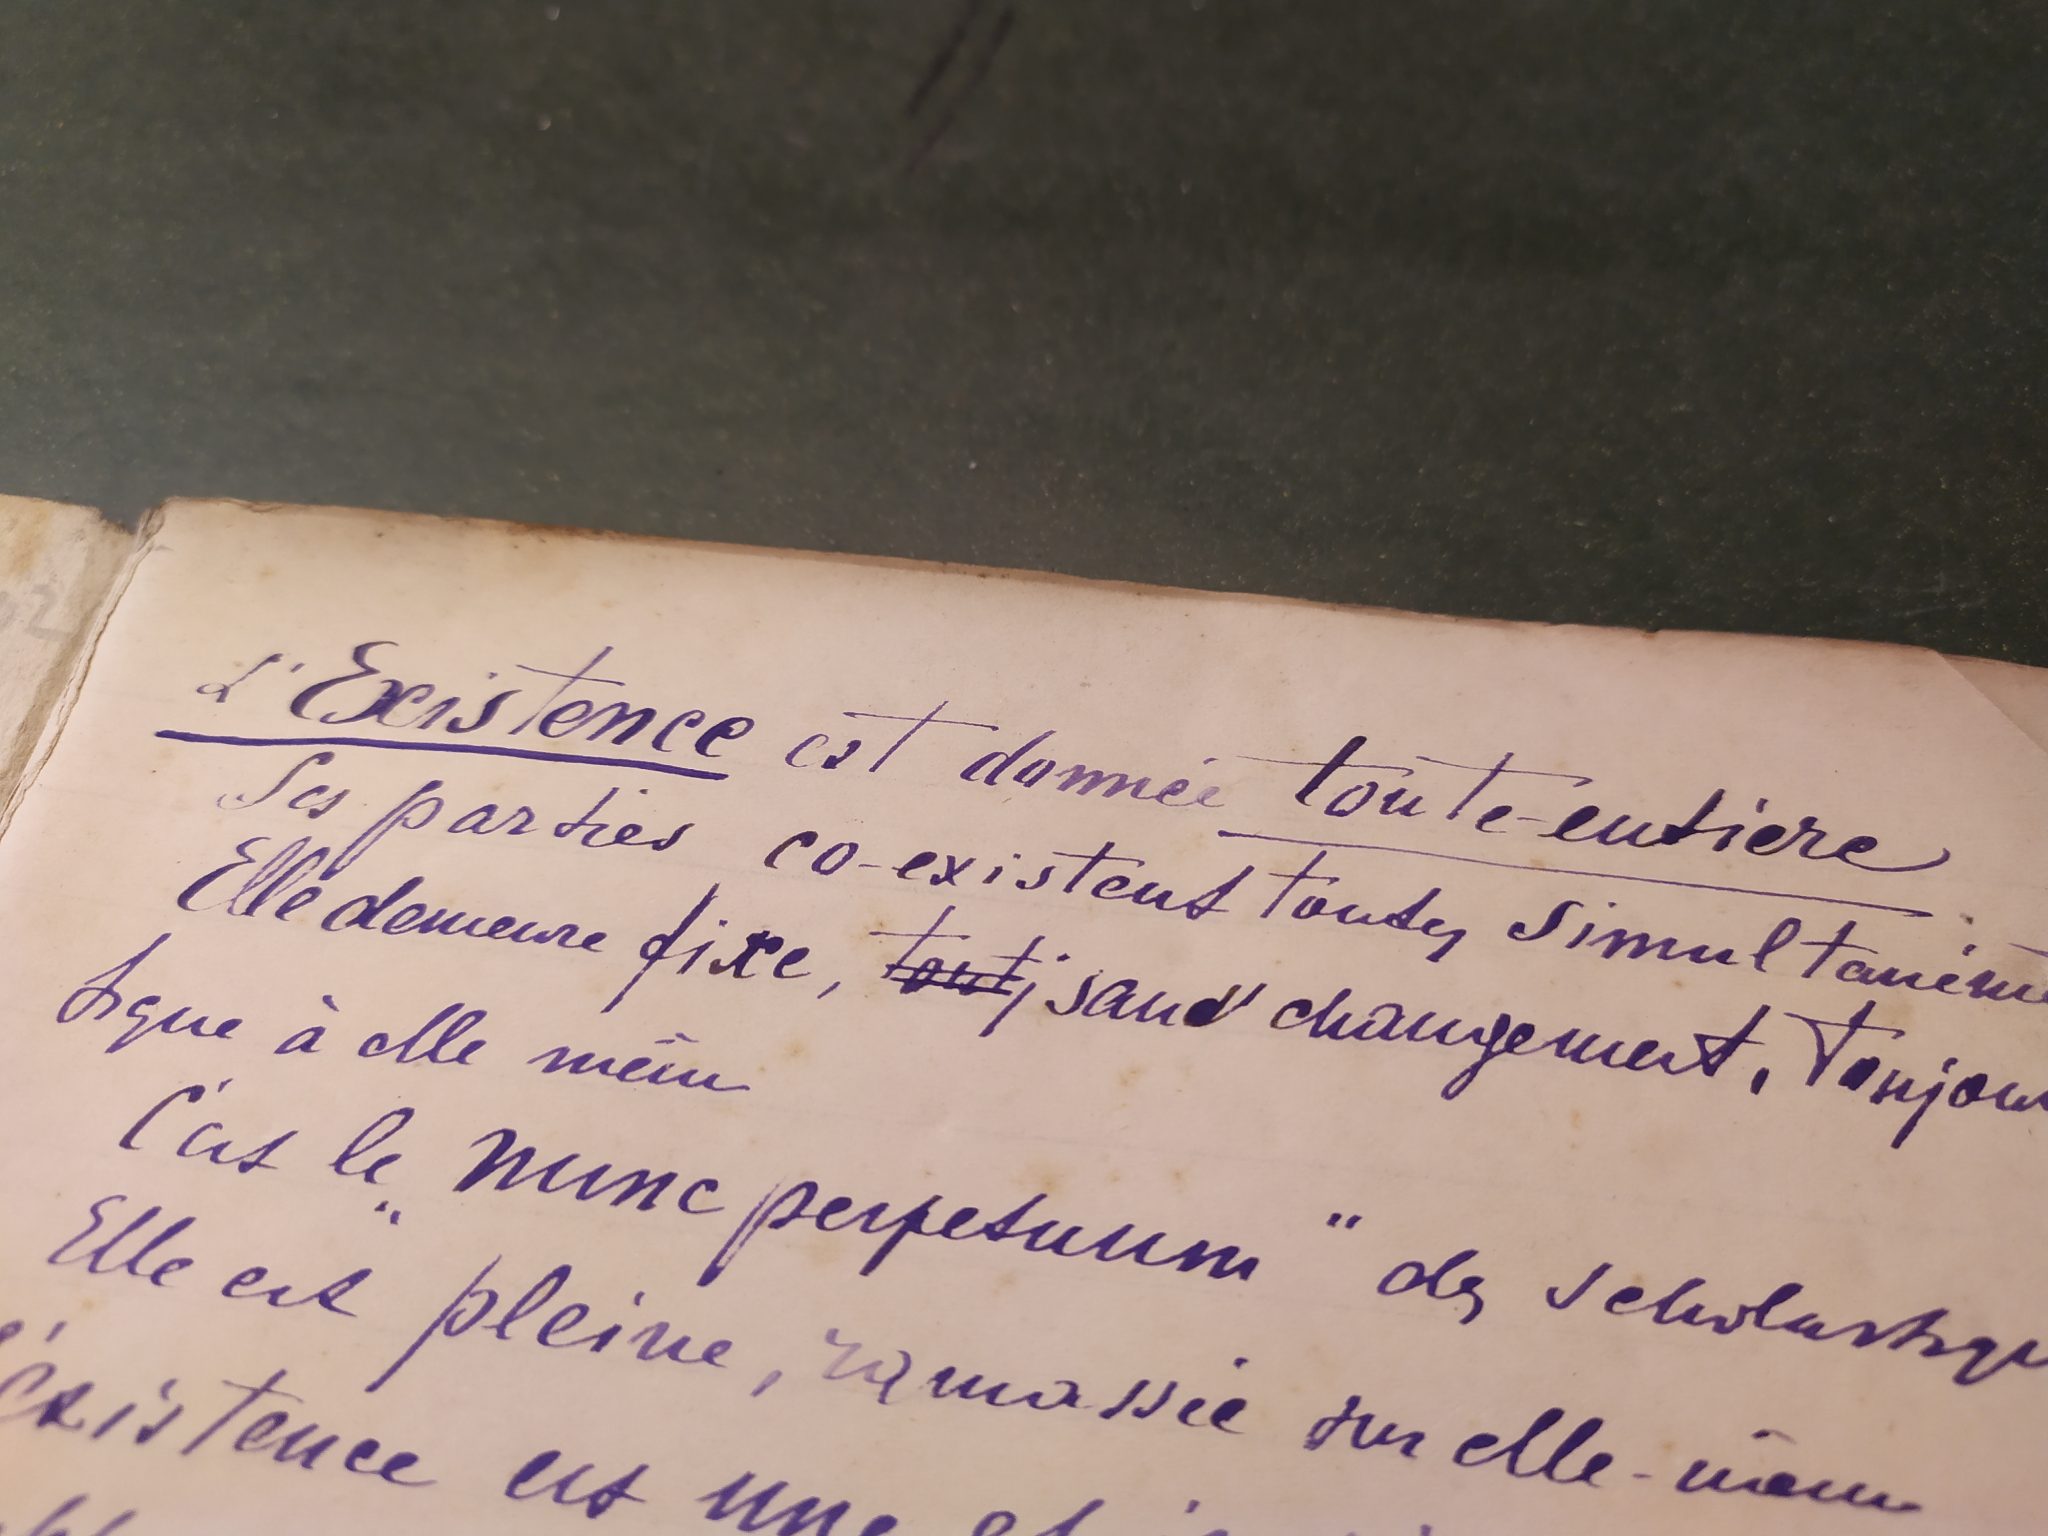 L'Existence est donnée toute-entière
Ses parties co-existent toutes simultaném
Elle demeure fixe, toutj sans changement, toujou
tique à elle même
C'est le "nunc perpetuum" des scholastiqu
Elle est pleine, ramassée sur elle-même
l'existence est une et